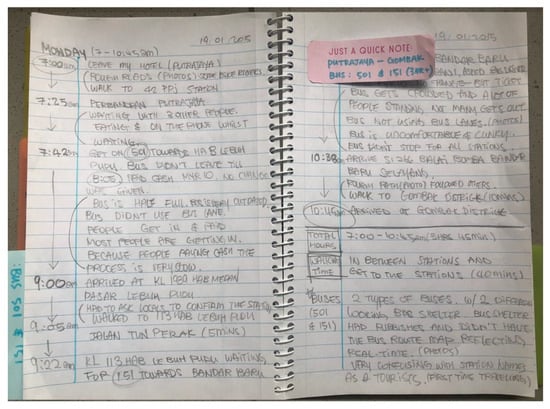 19.01.2015
MONDAY (7-10:45am)
7:00am LEAVE MY HOTEL (PUTRAJAYA)
ROUGH ROADS (PHOTOS) SOME BIKE RIDERS.
WALK TO STATION
7:25am PUTRAJAYA
WAITING WITH 8 OTHER PEOPLE.
EATING & ON THE PHONE WHILST
WAITING.
7:42am GET ON 501 TOWARDS HAB LEBUH
PUDU. BUS DIDN'T LEAVE TILL
PAID CASH NO CHANGE
WAS GIVEN.
BUS IS HALF FULL. BUS IS VERY OUTDATED
BUS DIDN'T USE BUS LANE.
PEOPLE GET IN & PAID
MOST PEOPLE ARE GETTING IN.
BECAUSE PEOPLE PAYING CASH THE
PROCESS IS VERY SLOW.
9:00am ARRIVED AT KL MEDAN
PASAR LEBUH PUDU
HAD TO ASK LOCALS TO CONFIRM THE
WALKED TO 113 HAB LEBUH PUDU
9:05am JALAN TUN PERAK (5MINS)
9:22am KL 113 HAB LEBUH PUDU WAITING
FOR 151 TOWARDS BANDAR BARU
BUS 501 & 151
19.01.2015
JUST A QUICK NOTE:
PUTRAJAYA - GOMBAK
BUS: 501 & 151
BANDAR BARU
BUS GETS CROWDED AND A LOT OF
PEOPLE STANDING NOT MANY GETS OUT.
BUS NOT USING BUS LANES. (PHOTOS)
BUS IS UNCOMFORTABLE & CLUNKY.
BUS DIDN'T STOP FOR ALL STATIONS.
10:38am ARRIVE BALAI BOMBA BANDAR
BARU SELAYANG.
ROUGH PATH (PHOTO) FOLLOWED OTHERS.
WALK TO GOMBAK DISTRICT
10:45am ARRIVED AT GOMBAK DISTRICT
TOTAL HOURS 7:00-10:45am (3HRS 45min)
WALKING TIME IN BETWEEN STATIONS AND
GET TO THE STATIONS
BUSES 2 TYPES OF BUSES. W/ 2 DIFFERENT
(501 LOOKING BUS SHELTER. BUS SHELTER
& 151) HAD AND DIDN'T HAVE
THE BUS ROUTE MAP REFLECTING
REAL-TIME. (PHOTOS)
VERY CONFUSING WITH STATION NAMES
AS A TOURISTS. (FIRST TIME